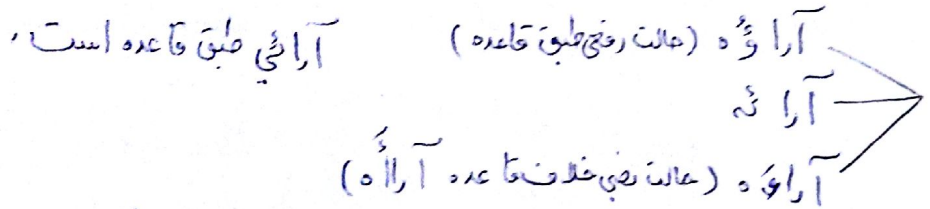 آراؤُه (حالت رفعی طبق قاعده) آرائي طبق قاعده است.
آرائه
آراءَه (حالت نصبی خلاف قاعده آراأَه)